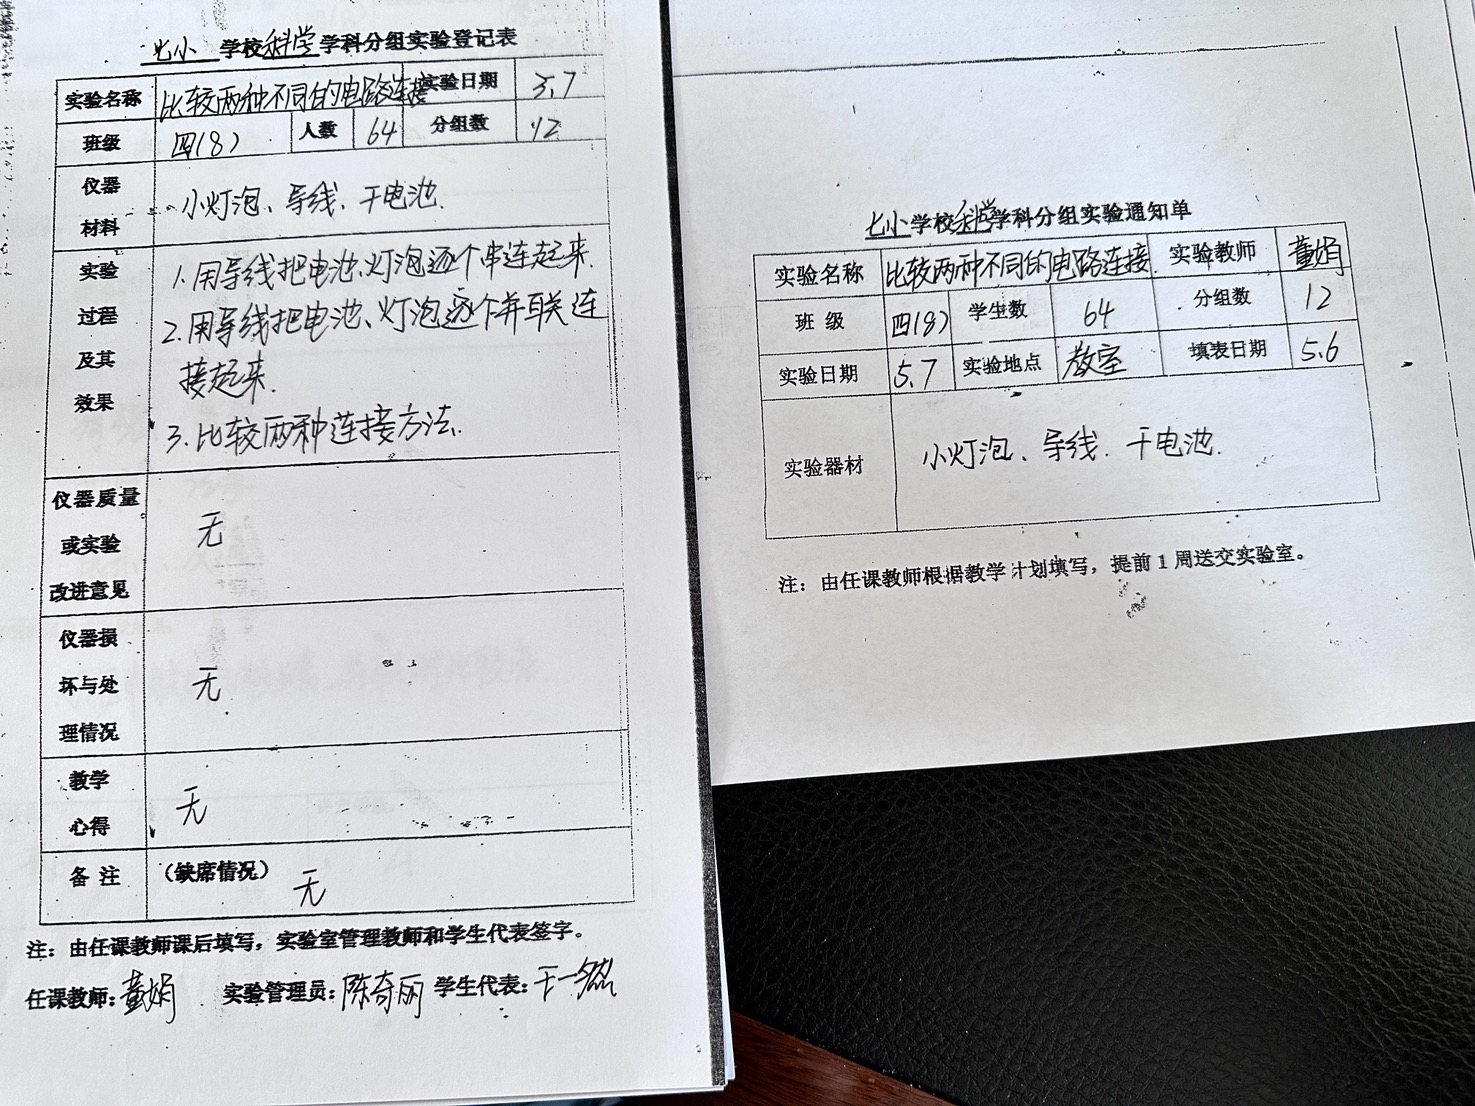 七小 学校科学学科分组实验登记表
实验名称 比较两种不同的电路连接 实验日期 5.7
班级 四(8) 人数 64 分组数 12
仪器材料 小灯泡、导线、干电池.
实验过程及其效果 1.用导线把电池、灯泡逐个串连起来.
2.用导线把电池、灯泡逐个并联连
接起来.
3.比较两种连接方法.
仪器质量或实验改进意见 无
仪器损坏与处理情况 无
教学心得 无
备注 (缺席情况) 无
注：由任课教师课后填写，实验室管理教师和学生代表签字。
任课教师：董娟 实验管理员：陈奇丽 学生代表：
七小学校科学学科分组实验通知单
实验名称 比较两种不同的电路连接 实验教师 董娟
班级 四(8) 学生数 64 分组数 12
实验日期 5.7 实验地点 教室 填表日期 5.6
实验器材 小灯泡、导线.干电池.
注：由任课教师根据教学计划填写，提前1周送交实验室。